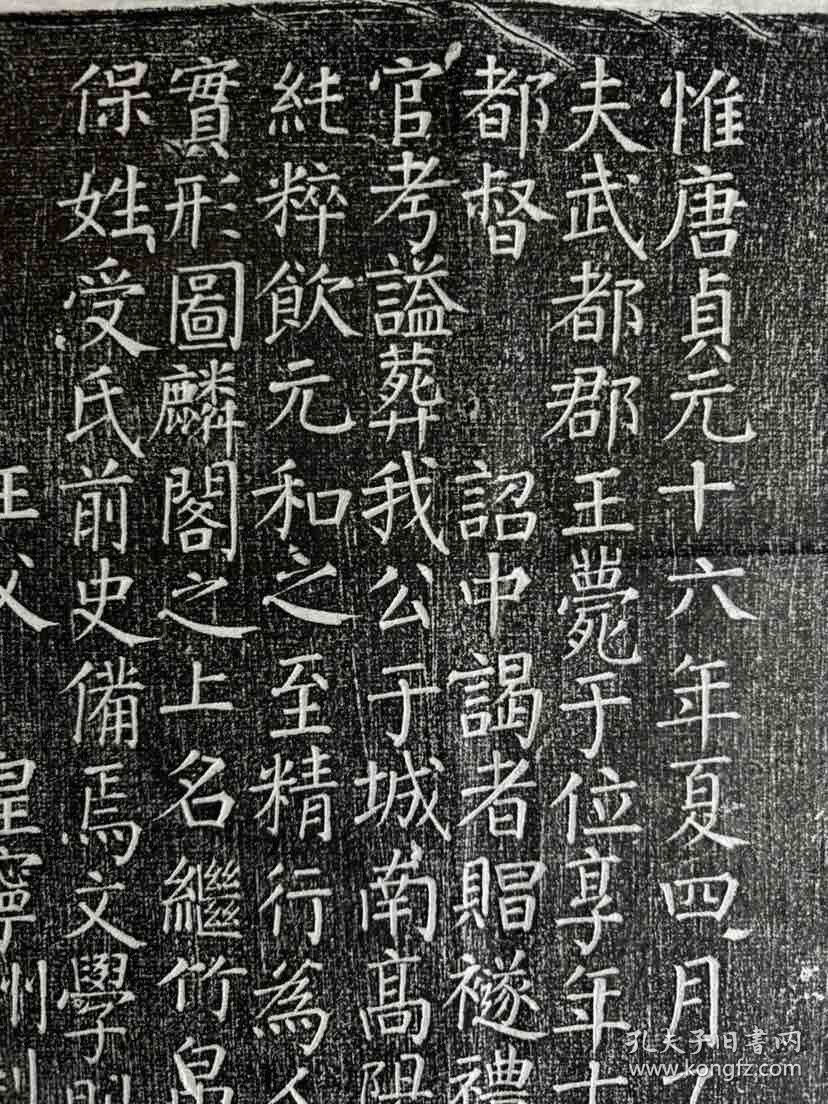 惟唐貞元十六年夏四月
夫武都郡王薨于位享年
都督 詔中謁者賵襚禮
官考謚葬我公于城南髙
純粹飲元和之至精行為人
實形圖麟閣之上名繼竹帛
保姓受氏前史備焉文學
皇寧州
孔夫子旧書网
www.kongfz.com